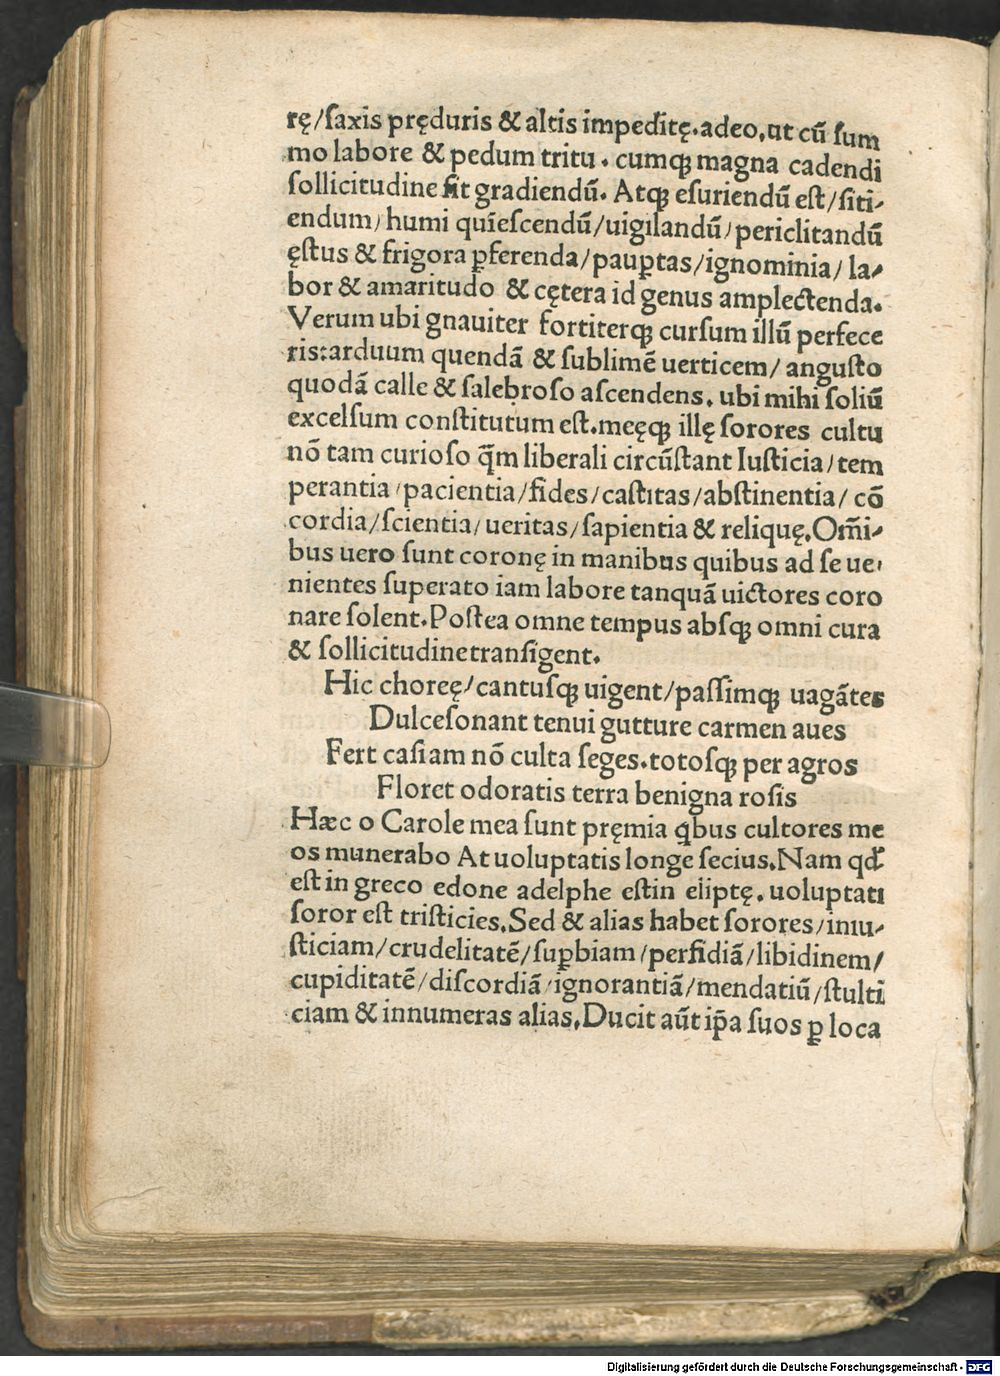 rę/ſaxis pręduris & altis impeditę.adeo,ut cū ſum
mo labore & pedum tritu . cumqꝫ magna cadendi
ſollicitudine ſit gradiendū. Atqꝫ eſuriendū eſt/ſiti⸗
endum/humi quieſcendū/uigilandū/periclitandū
ęſtus & frigora ꝑferenda/pauꝑtas/ignominia/la⸗
bor & amaritudo & cętera id genus amplectenda.
Verum ubi gnauiter fortiterqꝫ curſum illū perfece
ris:arduum quendā & ſublimē uerticem/ anguſto
quodā calle & ſalebroſo aſcendens. ubi mihi ſoliū
excelſum conſtitutum eſt.meęqꝫ illę ſorores cultu
nō tam curioſo q̄m liberali circūſtant Iuſticia/tem
perantia/pacientia/fides/caſtitas/abſtinentia/ cō
cordia/ſcientia/ueritas/ſapientia & reliquę.Om̄i⸗
bus uero ſunt coronę in manibus quibus ad ſe ue⸗
nientes ſuperato iam labore tanquā uictores coro
nare ſolent.Poſtea omne tempus abſqꝫ omni cura
& ſollicitudine tranſigent.
Hic choreę/cantuſqꝫ uigent/paſſimqꝫ uagātes
Dulceſonant tenui gutture carmen aues
Fert caſiam nō culta ſeges.totoſqꝫ per agros
Floret odoratis terra benigna roſis
Hæc o Carole mea ſunt pręmia qͥbus cultores me
os munerabo At uoluptatis longe ſecius.Nam qđ
eſt in greco edone adelphe eſtin eliptę. uoluptati
ſoror eſt triſticies.Sed & alias habet ſorores/iniu⸗
ſticiam/crudelitatē/ſuꝑbiam/perfidiā/libidinem/
cupiditatē/diſcordiā/ignorantiā/mendatiū/ſtulti
ciam & innumeras alias.Ducit aūt ip̄a ſuos ꝑ loca
Digitalisierung gefördert durch die Deutsche Forschungsgemeinschaft - DFG